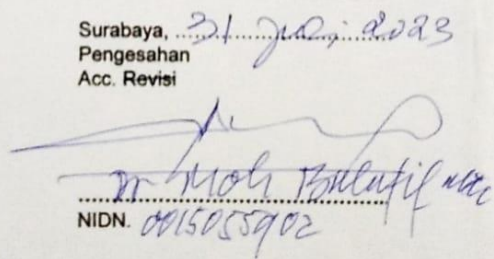 Surabaya, 31 Juli 2023
Pengesahan
Acc. Revisi
Dr Moh
NIDN. 0015055902